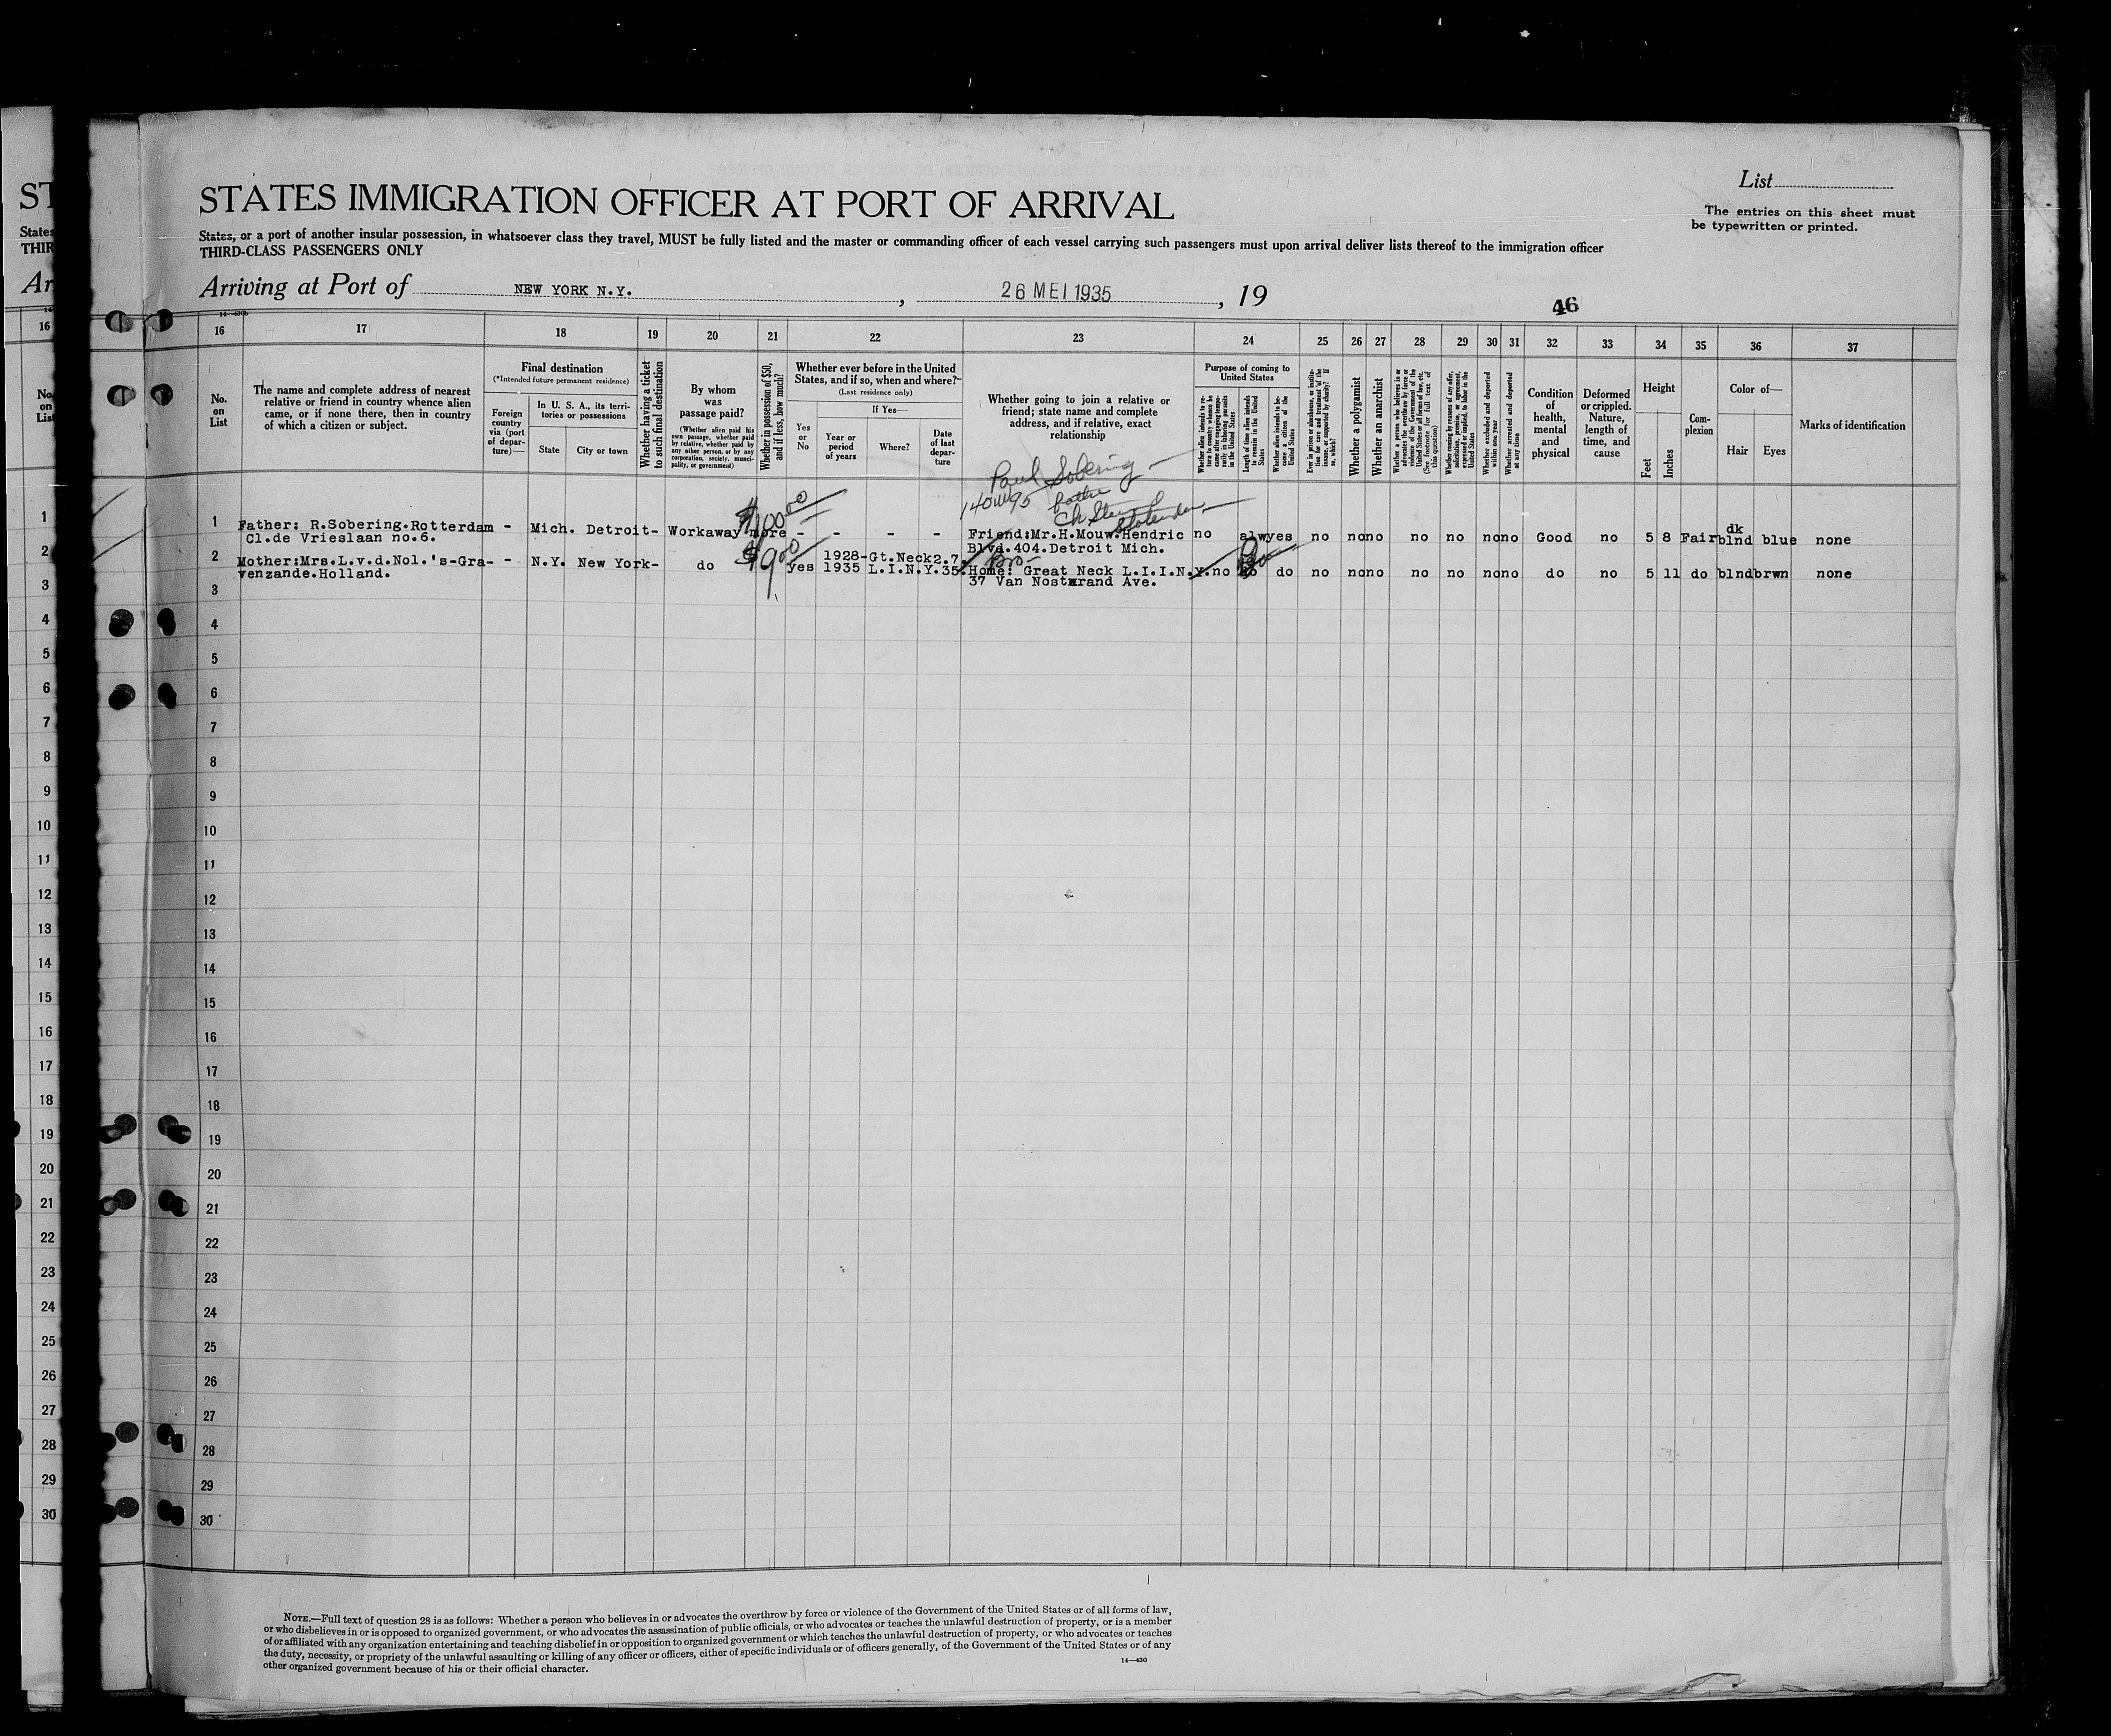 STATES IMMIGRATION OFFICER AT PORT OF ARRIVAL
List
The entries on this sheet must
be typewritten or printed.
States, or a port of another insular possession, in whatsoever class they travel, MUST be fully listed and the master or commanding officer of each vessel carrying such passengers must upon arrival deliver lists thereof to the immigration officer
THIRD-CLASS PASSENGERS ONLY
Arriving at Port of NEW YORK N.Y. , 26 MEI 1935 , 19
46
16 17 18 19 20 21 22 23 24 25 26 27 28 29 30 31 32 33 34 35 36 37
No. on List
The name and complete address of nearest
relative or friend in country whence alien
came, or if none there, then in country
of which a citizen or subject.
Final destination
(*Intended future permanent residence)
Foreign country via (port of departure)—
In U. S. A., its territories or possessions
State
City or town
Whether having a ticket to such final destination
By whom was passage paid?
(Whether alien paid his own passage, whether paid by relative, whether paid by any other person, or by any corporation, society, municipality, or government)
Whether in possession of $50, and if less, how much?
Whether ever before in the United
States, and if so, when and where?—
(Last residence only)
If Yes—
Yes or No
Year or period of years
Where?
Date of last departure
Whether going to join a relative or
friend; state name and complete
address, and if relative, exact
relationship
Purpose of coming to United States
Length of time alien intends to remain in the United States
Whether alien intends to become a citizen of the United States
Whether a polygamist
Whether an anarchist
(See footnote for full text of this question)
Whether excluded and deported within one year
Whether arrested and deported at any time
Condition of health, mental and physical
Deformed or crippled. Nature, length of time, and cause
Height
Feet
Inches
Complexion
Color of—
Hair
Eyes
Marks of identification
Paul Sobering
140 W 95
$100.00
1 Father: R.Sobering.Rotterdam - Mich. Detroit- Workaway more - - - - Friend:Mr.H.Mouw.Hendric no alwyes no nono no no nono Good no 5 8 Fair dk blnd blue none
Cl.de Vrieslaan no.6. Blvd.404.Detroit Mich.
2 Mother:Mrs.L.v.d.Nol.'s-Gra- - N.Y. New York- do $9.00 yes 1928-1935 Gt.Neck L.I.N.Y. 2.7.35. Home: Great Neck L.I.I.N.Y. no do no nono no no nono do no 5 11 do blnd brwn none
venzande.Holland. 37 Van Nostxrand Ave.
3
4
5
6
7
8
9
10
11
12
13
14
15
16
17
18
19
20
21
22
23
24
25
26
27
28
29
30
NOTE.—Full text of question 28 is as follows: Whether a person who believes in or advocates the overthrow by force or violence of the Government of the United States or of all forms of law,
or who disbelieves in or is opposed to organized government, or who advocates the assassination of public officials, or who advocates or teaches the unlawful destruction of property, or is a member
of or affiliated with any organization entertaining and teaching disbelief in or opposition to organized government or which teaches the unlawful destruction of property, or who advocates or teaches
the duty, necessity, or propriety of the unlawful assaulting or killing of any officer or officers, either of specific individuals or of officers generally, of the Government of the United States or of any
other organized government because of his or their official character.
14—430